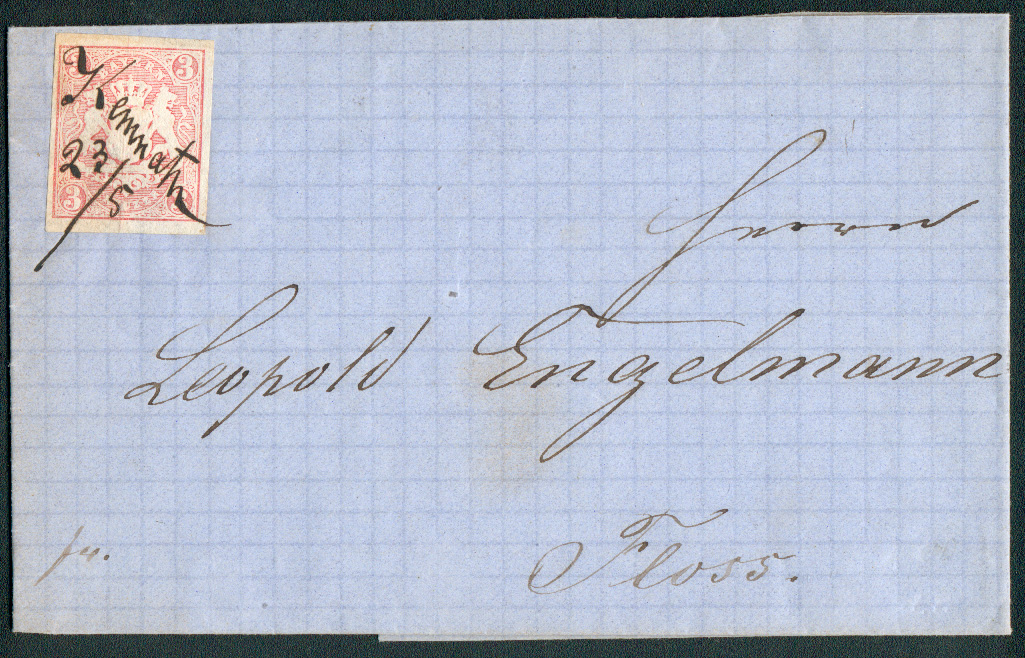 3
Kemnath
23/5
3
Herrn
Leopold Engelmann
Floss.
fr.